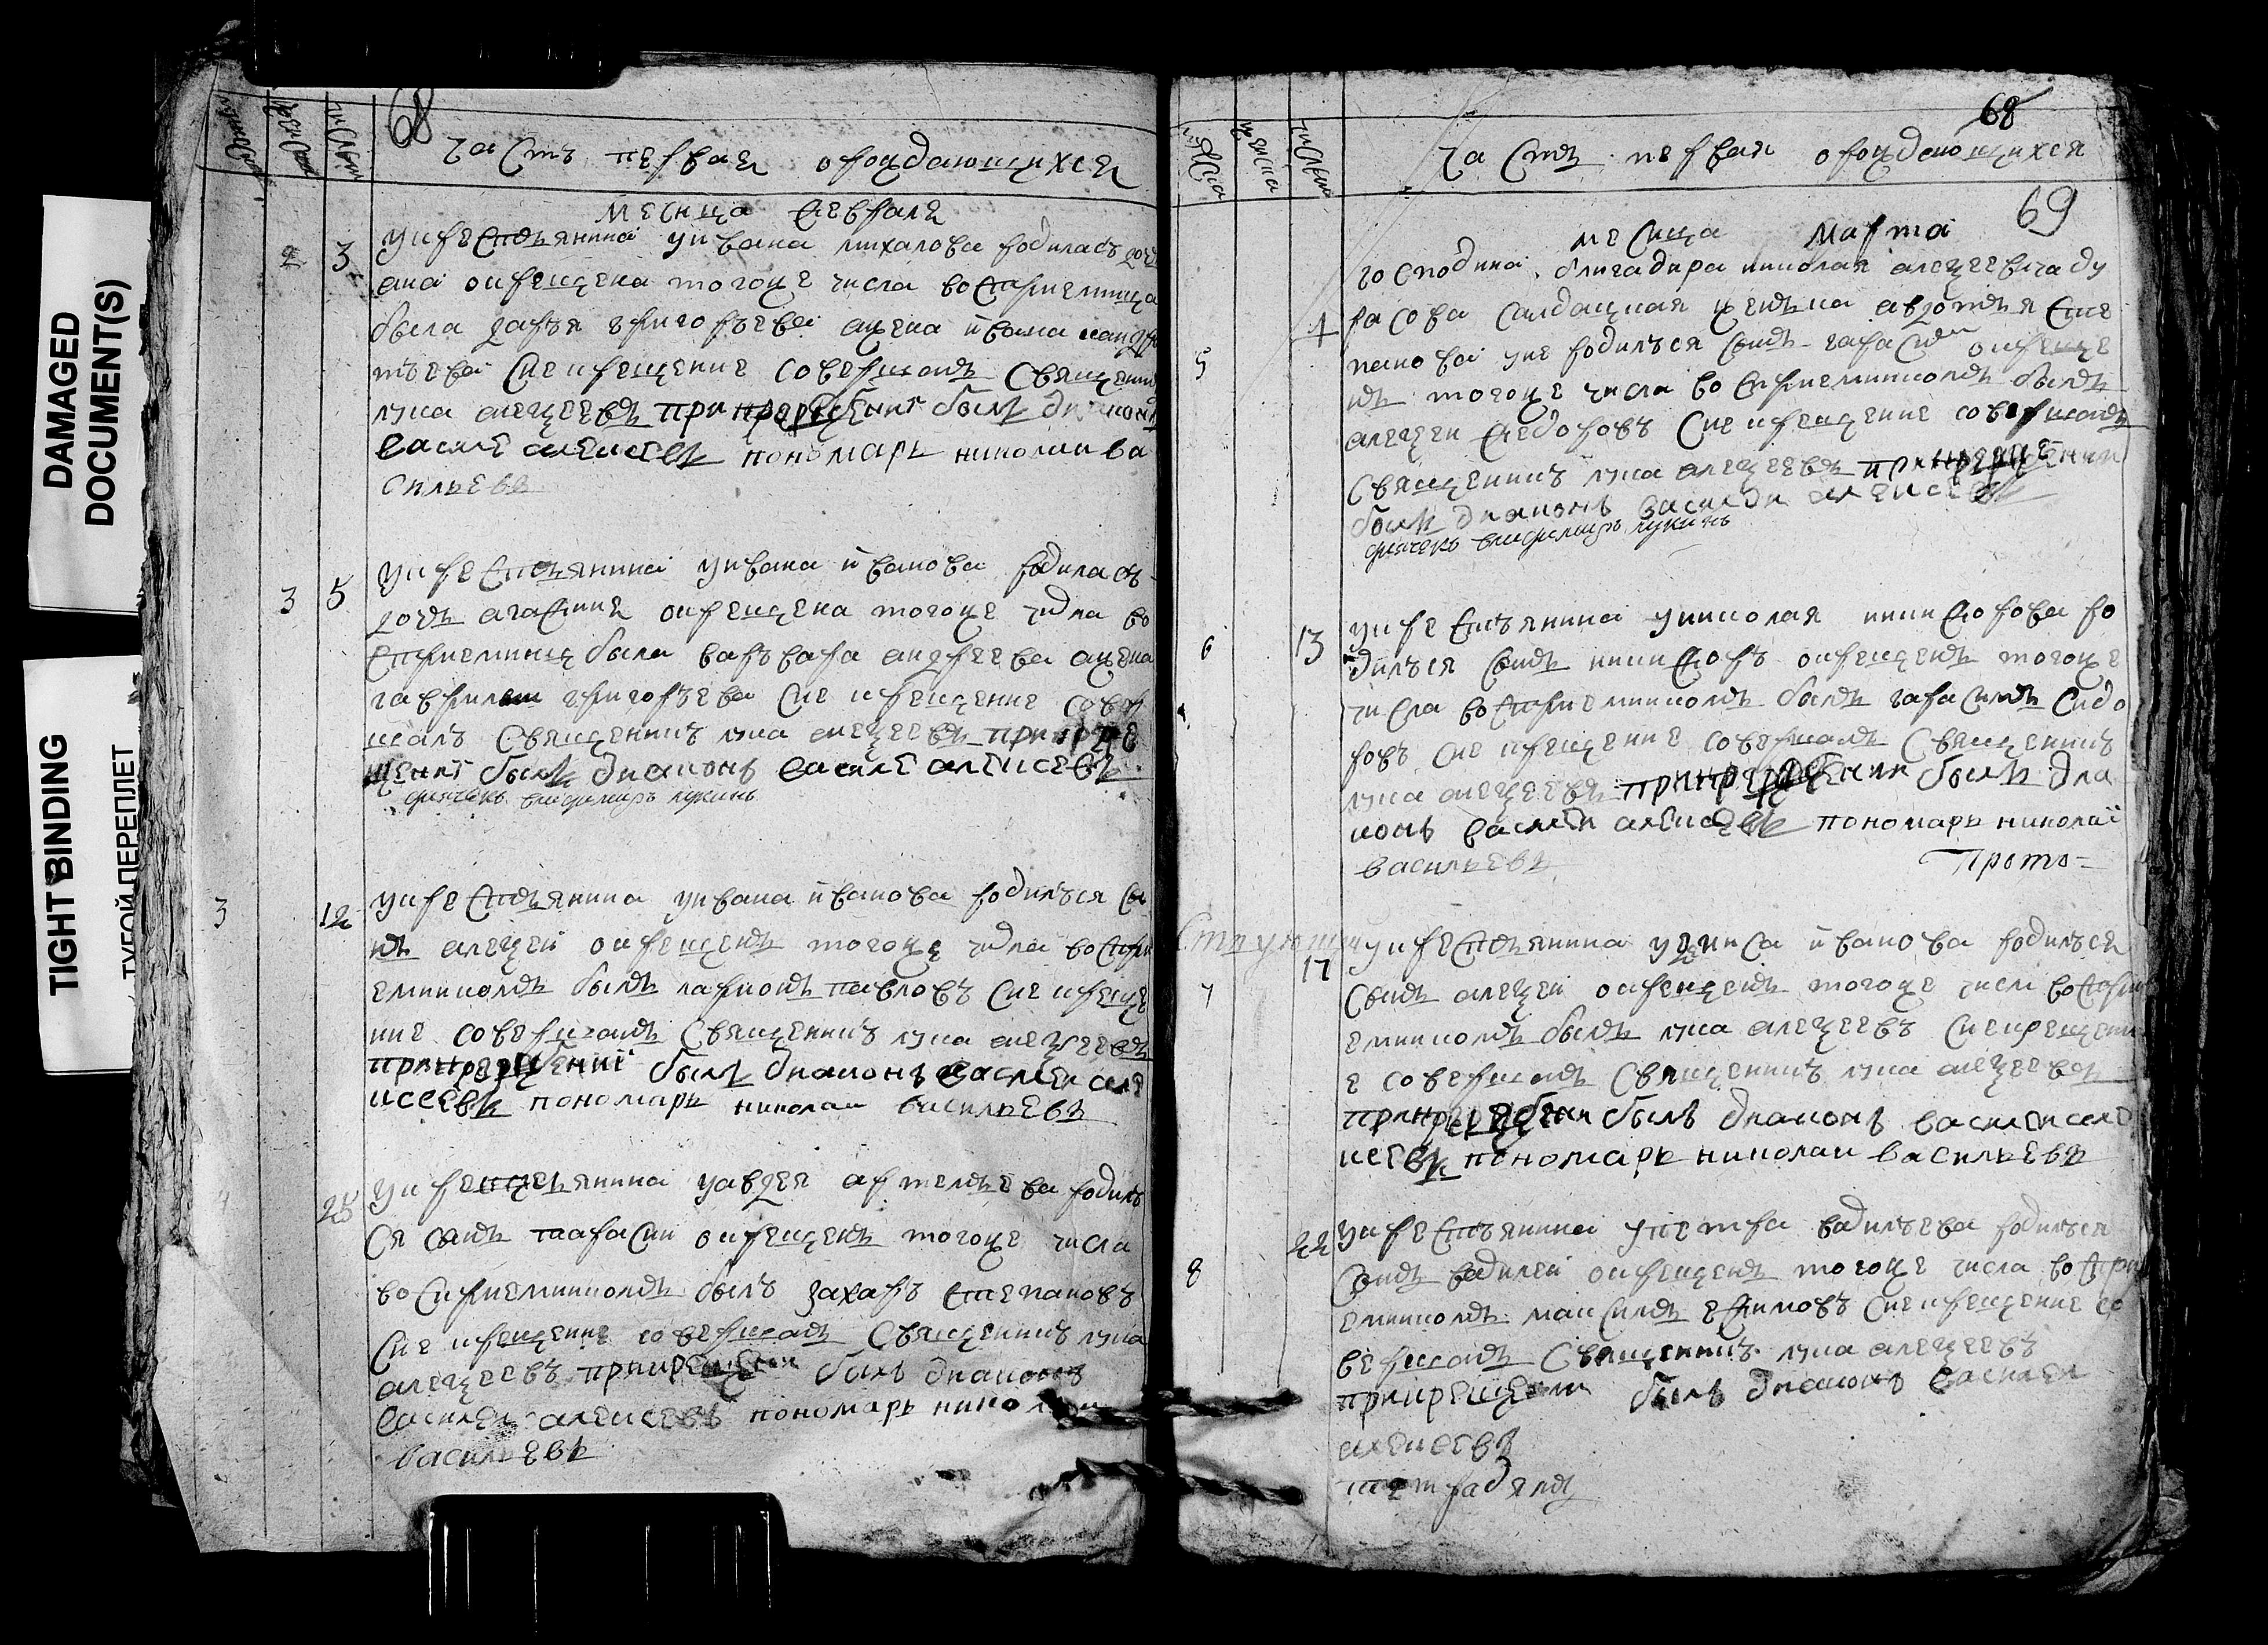 DAMAGED
DOCUMENT(S)
TIGHT BINDING
ТУГОЙ ПЕРЕПЛЕТ
68
часть первая о рождающихся
месяца февраля
2 3 укрестьянина уивана михалова родилась дочь
окрещена тогоже числа восприемница
была дарья григорьева жена ивана
сие крещение совершалъ священникъ
лука алеѯеевъ при крещениі былъ диаконъ
василе алексеевъ пономарь николаи ва
сильевъ
3 5 укрестьянина уивана иванова родилась
дочь агафия окрещена тогоже числа во
сприемница была варъвара андреева жена
гаврилы григорьева сие крещение совер
шалъ священникъ лука алеѯеевъ при креще
щениі былъ диаконъ василе алексеевъ
дячекъ владимиръ лукинъ
3 12 укрестьянина уивана иванова родилъся сы
нъ алеѯей окрещенъ тогоже числа воспри
емникомъ былъ ларионъ павловъ сие креще
ние совершалъ священникъ лука алеѯеевъ
при крещениі былъ диаконъ василеи але
ксеевъ пономарь николаи васильевъ
4 25 укрестьянина уавдея артемьева родилъ
ся сынъ тарасии окрещенъ тогоже числа
восприемникомъ былъ захаръ степановъ
сие крещение совершалъ священникъ лука
алеѯеевъ при крещении былъ диаконъ
василеи алексеевъ пономарь николаи
васильевъ
68
часть первая о рождающихся
69
месяца марта
господина бригадира николая алеѯеевича ду
расова салдацкая женъка авдотья сте
5 1 панова унее родилъся сынъ гарасимъ окреще
нъ тогоже числа восприемникомъ былъ
алеѯеи федоровъ сие крещение совершалъ
священникъ лука алеѯеевъ при крещении
былъ диаконъ василеи алексеевъ
дячекъ владимиръ лукинъ
6 13 укрестьянина униколая никифорова ро
дилъся сынъ никифоръ окрещенъ тогоже
числа восприемникомъ былъ гарасимъ сидо
ровъ сие крещение совершалъ священникъ
лука алеѯеевъ при крещении былъ диа
конъ василеи алексеевъ пономарь николаі
васильевъ
Прото=
7 17 укрестьянина удениса иванова родилъся
сынъ алеѯеи окрещенъ тогоже числа воспри
емникомъ былъ лука алеѯеевъ сие крещени
е совершалъ священникъ лука алеѯеевъ
при крещении былъ диаконъ василеи але
ксеевъ пономарь николаи васильевъ
8 22 укрестьянина упетра васильева родилъся
сынъ василеи окрещенъ тогоже числа воспри
емникомъ максимъ ефимовъ сие крещение со
вершалъ священникъ лука алеѯеевъ
при крещении былъ диаконъ василеи
алексеевъ